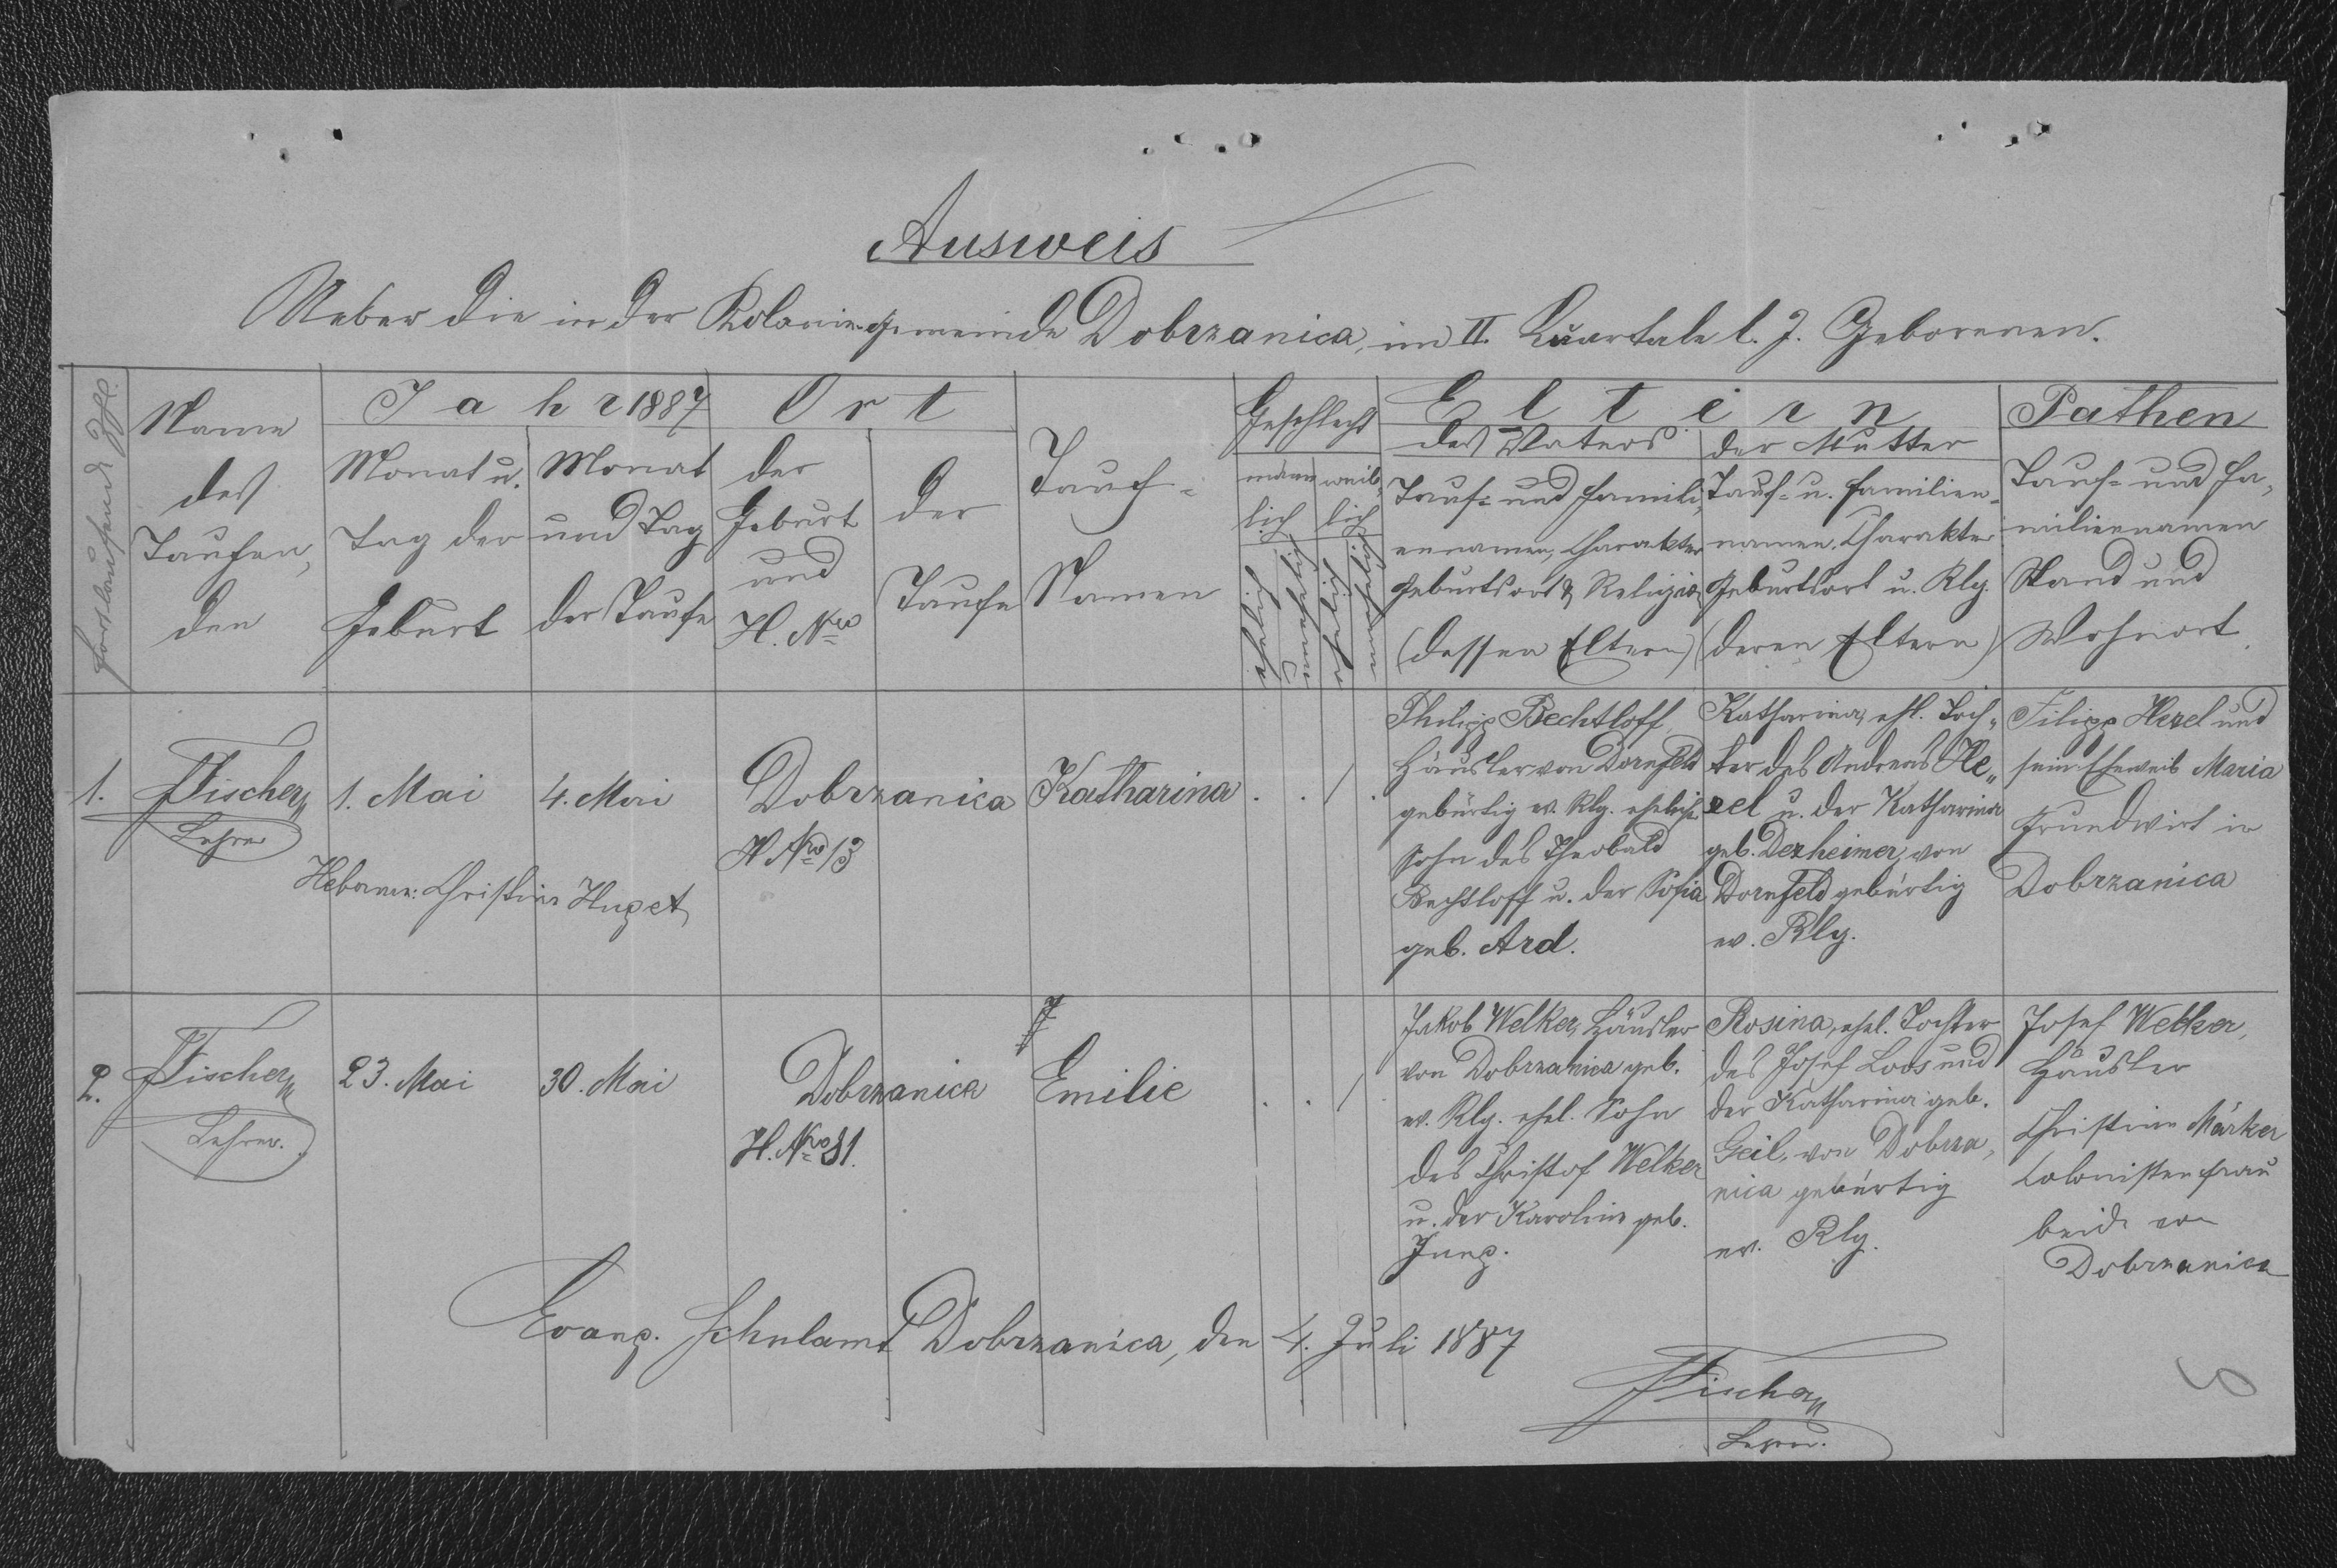 Ausweis
Ueber die in der Koloniegemeinde Dobrzanica, im II. Quartale l. J. Geborenen.
Fortlaufende Zhl.
Name
des
Taufen,
den
Jahr 1887
Monat u.
Tag der
Geburt
Monat
und Tag
der Taufe
Ort
der
Geburt
und
H. Nro
der
Taufe
Tauf-
Namen
Geschlecht
männ
lich
weib,
lich
ehelich
unehelich
ehelich
unehelich
Eltern
des Vaters
Tauf- und Famili,
ennamen, Charakter
Geburtsort & Religion
(dessen Eltern)
der Mutter
Tauf- u. Familien-
namen. Charakter
Geburtsort u. Rlg.
(deren Eltern)
Pathen
Tauf- und Fa,
miliennamen
Stand und
Wohnort.
1.
Fischer
Lehrer
1. Mai
4. Mai
Dobrzanica
H Nro 13
Katharina
. . / .
Hebamme: Christine Huget
Philipp Bechtloff
Häusler von Dornfeld
gebürtig ev. Rlg. ehelich.
Sohn des Theobald
Bechtloff u. der Sofia
geb. Ard.
Katharina, ehl. Toch„
ter des Andreas He„
zel u. der Katharina
geb. Dexheimer, von
Dornfeld gebürtig
ev. Rlg.
Filipp Hezel und
sein Eheweib Maria
Grundwirt in
Dobrzanica
2.
Fischer
Lehrer.
23. Mai
30. Mai
Dobrzanica
H. Nro 31.
Emilie
. . /
Jakob Welker, Häusler
von Dobrzanica geb.
ev. Rlg. ehel. Sohn
des Christof Welker
u. der Karoline geb.
Jung.
Rosina, ehel. Tochter
des Josef Loos und
der Katharina geb.
Geil, von Dobrza,
nica gebürtig
ev. Rlg.
Josef Welker,
Häusler
Christine Märker
Colonistenfrau
beide von
Dobrzanica
Evang. Schulamt Dobrzanica, den 4. Juli 1887
Fischer
Lehrer.